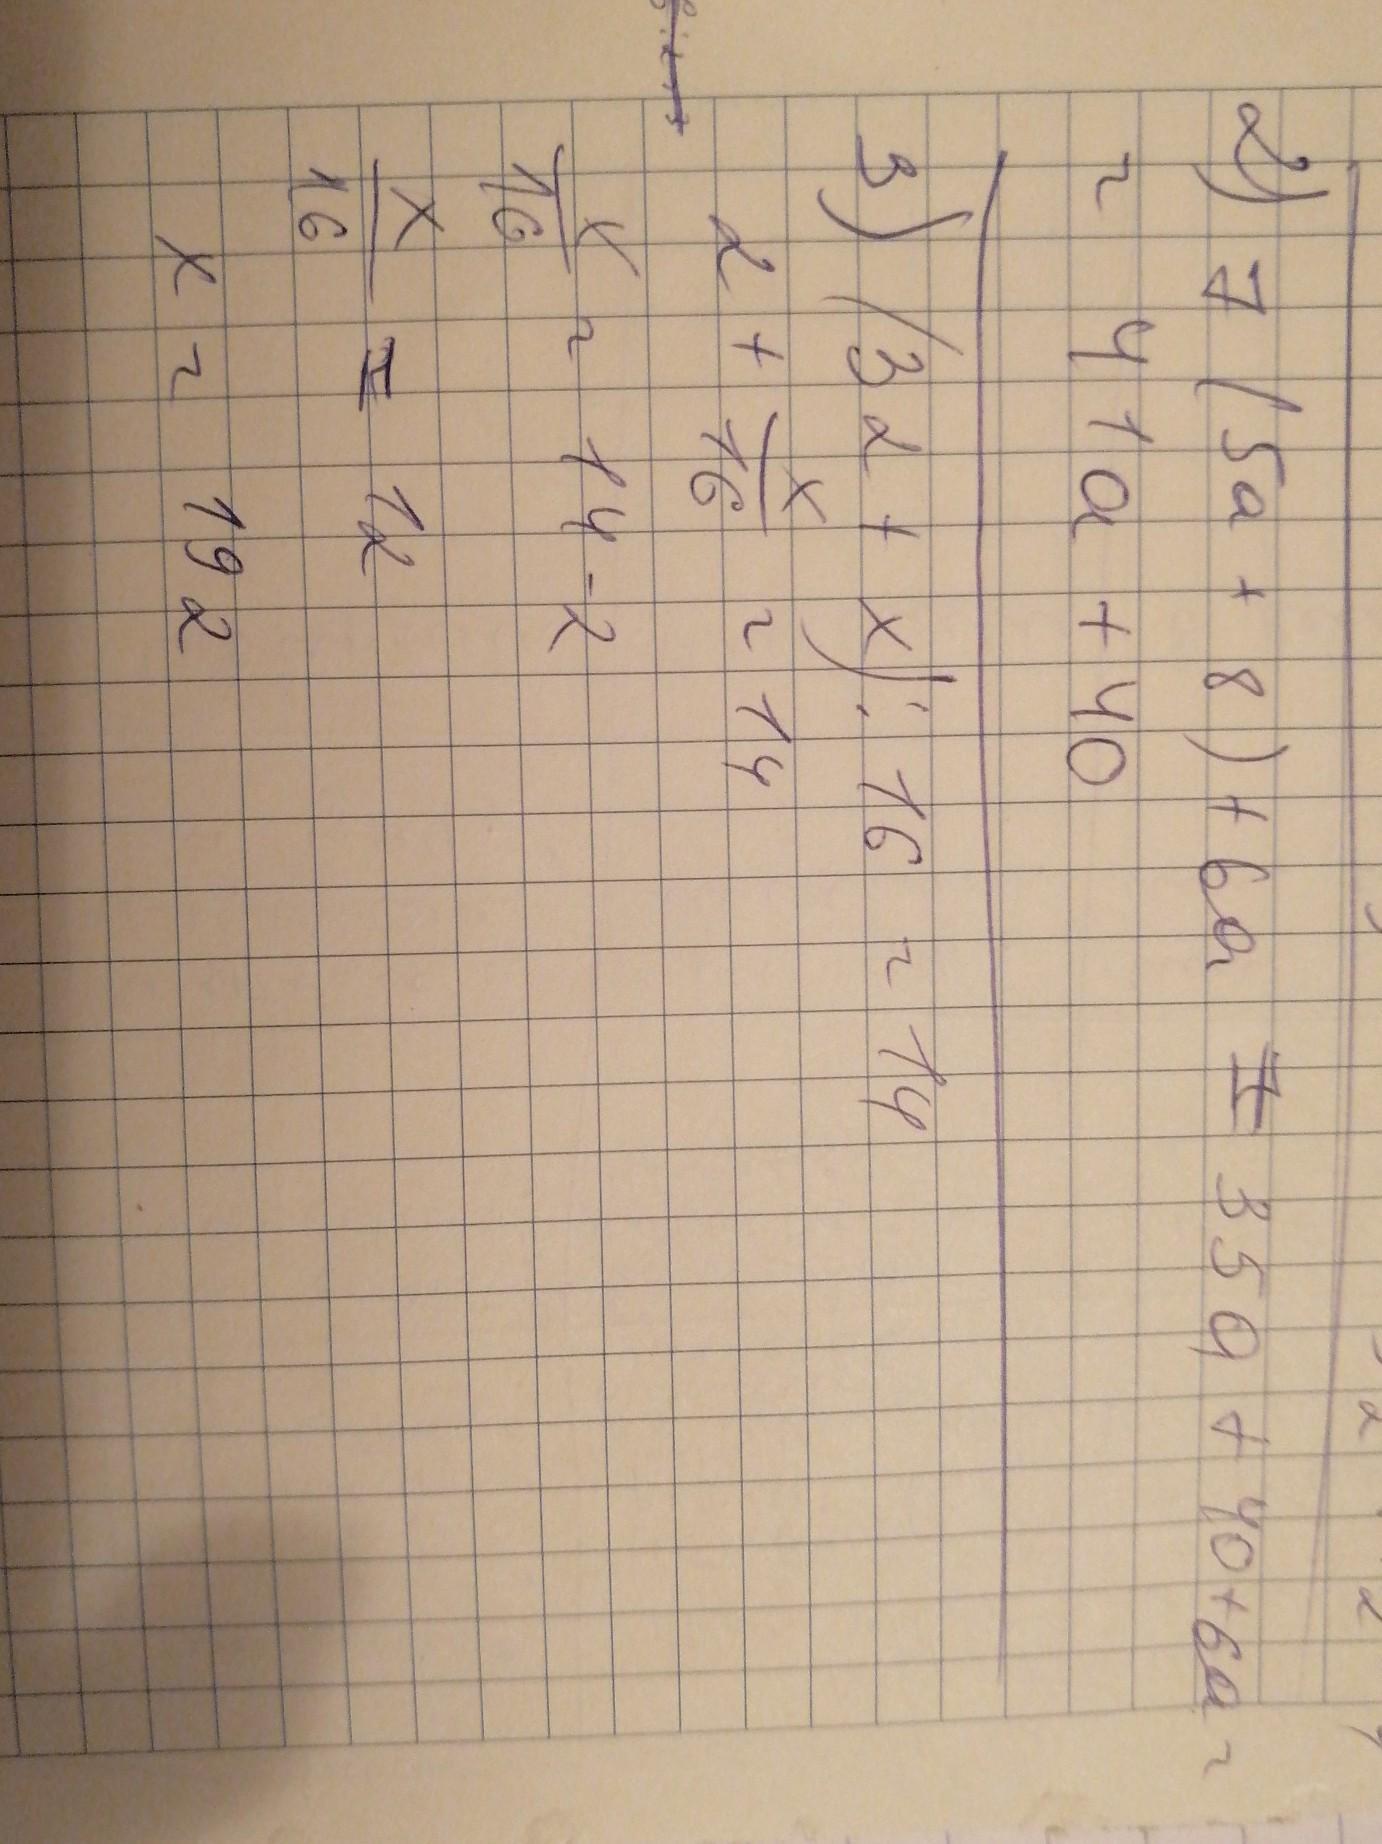 2) 7 (5a + 8) + 6a = 35a + 40 + 6a =
= 41a + 40
3) (32 + x) : 16 = 14
2 + x/16 = 14
x/16 = 14 - 2
x/16 = 12
x = 192